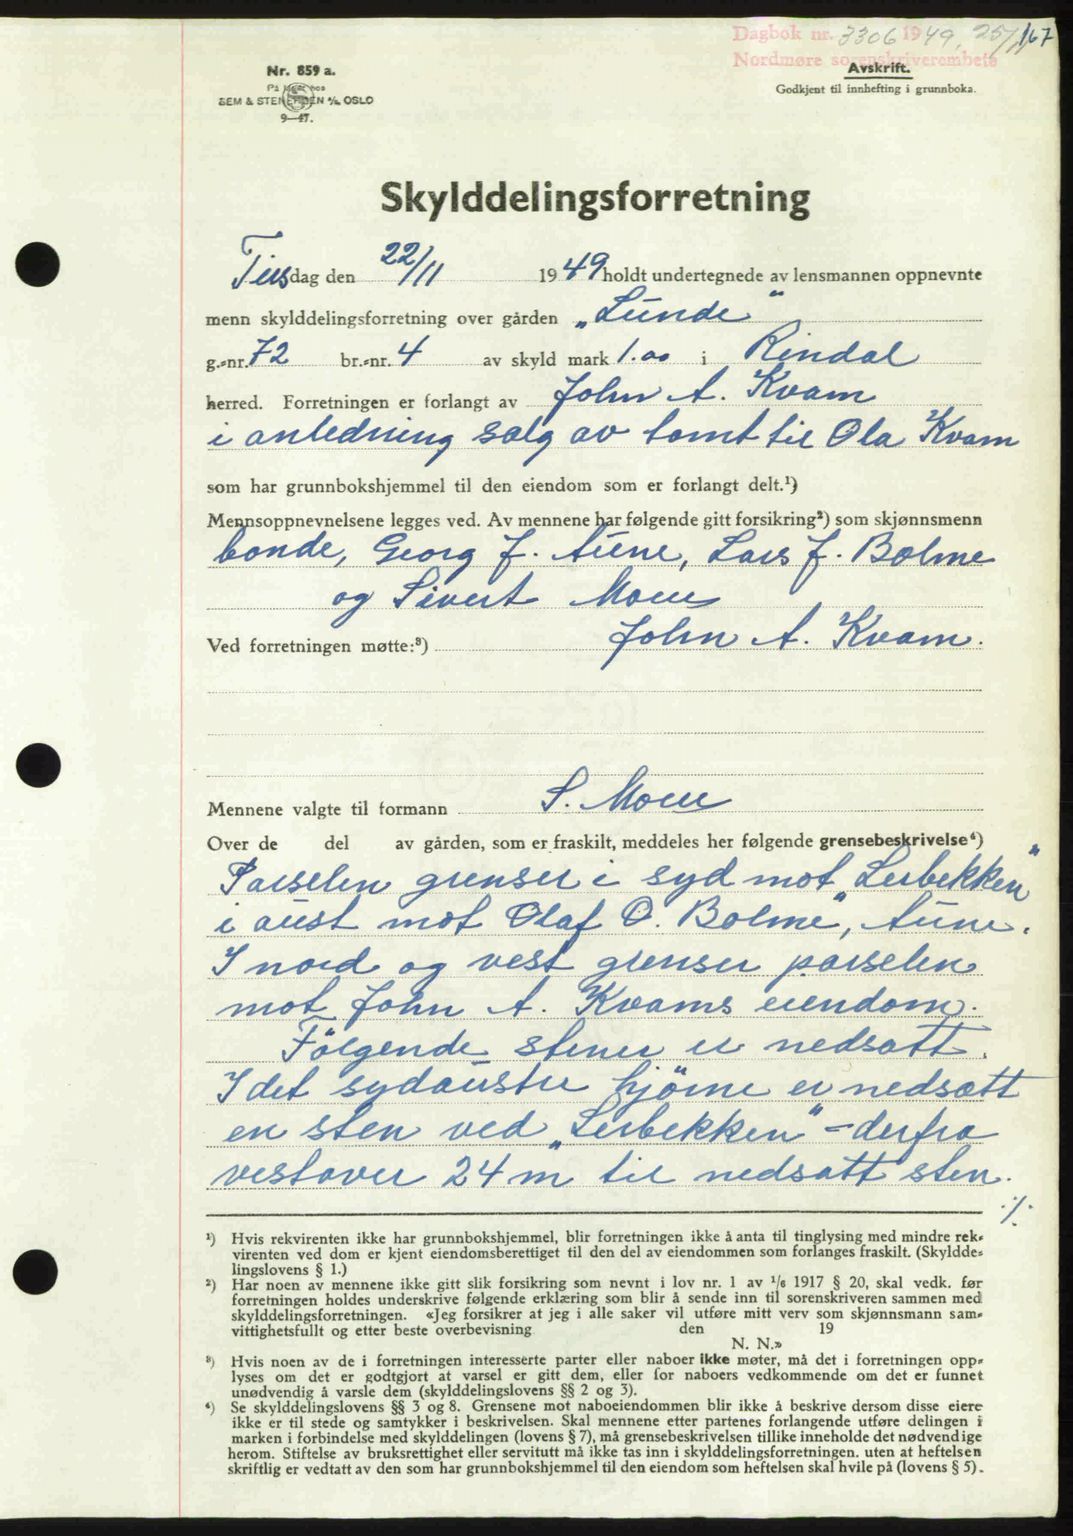 Dagbok nr. 3306 1949, 25/11 167
Nordmøre sorenskriverembete
Nr. 859 a.
På lager hos
SEM & STENERSEN A/S OSLO
9—47.
Avskrift.
Godkjent til innhefting i grunnboka.
Skylddelingsforretning
Tirsdag den 22/11 1949 holdt undertegnede av lensmannen oppnevnte
menn skylddelingsforretning over gården „Lunde"
g.-nr. 72 br.-nr. 4 av skyld mark 1.00 i Rindal
herred. Forretningen er forlangt av John A. Kvam
i anledning salg av tomt til Ola Kvam
som har grunnbokshjemmel til den eiendom som er forlangt delt.¹)
Mennsoppnevnelsene legges ved. Av mennene har følgende gitt forsikring²) som skjønnsmenn
bonde, Georg J. Aune, Lars J. Bolme
og Sivert Moen
Ved forretningen møtte:³) John A. Kvam.
Mennene valgte til formann S. Moen
Over de del av gården, som er fraskilt, meddeles her følgende grensebeskrivelse⁴)
Parselen grenser i syd mot „Lerbekken"
i aust mot Olaf O. Bolme", Aune.
I nord og vest grenser parselen
mot John A. Kvams eiendom.
Følgende stener er nedsatt.
I det sydaustre hjörne er nedsatt
en sten ved „Lerbekken" – derfra
vestover 24 m til nedsatt sten.
./.
¹) Hvis rekvirenten ikke har grunnbokshjemmel, blir forretningen ikke å anta til tinglysing med mindre rek-
virenten ved dom er kjent eiendomsberettiget til den del av eiendommen som forlanges fraskilt. (Skyldde-
lingslovens § 1.)
²) Har noen av mennene ikke gitt slik forsikring som nevnt i lov nr. 1 av ¹/₆ 1917 § 20, skal vedk. før
forretningen holdes underskrive følgende erklæring som blir å sende inn til sorenskriveren sammen med
skylddelingsforretningen. «Jeg forsikrer at jeg i alle saker vil utføre mitt verv som skjønnsmann sam-
vittighetsfullt og etter beste overbevisning den 19
N. N.»
³) Hvis noen av de i forretningen interesserte parter eller naboer ikke møter, må det i forretningen opp-
lyses om det er godtgjort at varsel er gitt dem, eller for naboers vedkommende om det er funnet
unødvendig å varsle dem (skylddelingslovens §§ 2 og 3).
⁴) Se skylddelingslovens §§ 3 og 8. Grensene mot naboeiendommen blir ikke å beskrive dersom disse eiere
ikke er til stede og samtykker i beskrivelsen. Skal mennene etter partenes forlangende utføre delingen i
marken i forbindelse med skylddelingen (lovens § 7), må grensebeskrivelsen tillike inneholde det nødvendige
herom. Stiftelse av bruksrettighet eller servitutt må ikke tas inn i skylddelingsforretningen, uten at heftelsen
skriftlig er vedtatt av den som har grunnbokshjemmel til den eiendom som heftelsen skal hvile på (lovens § 5).